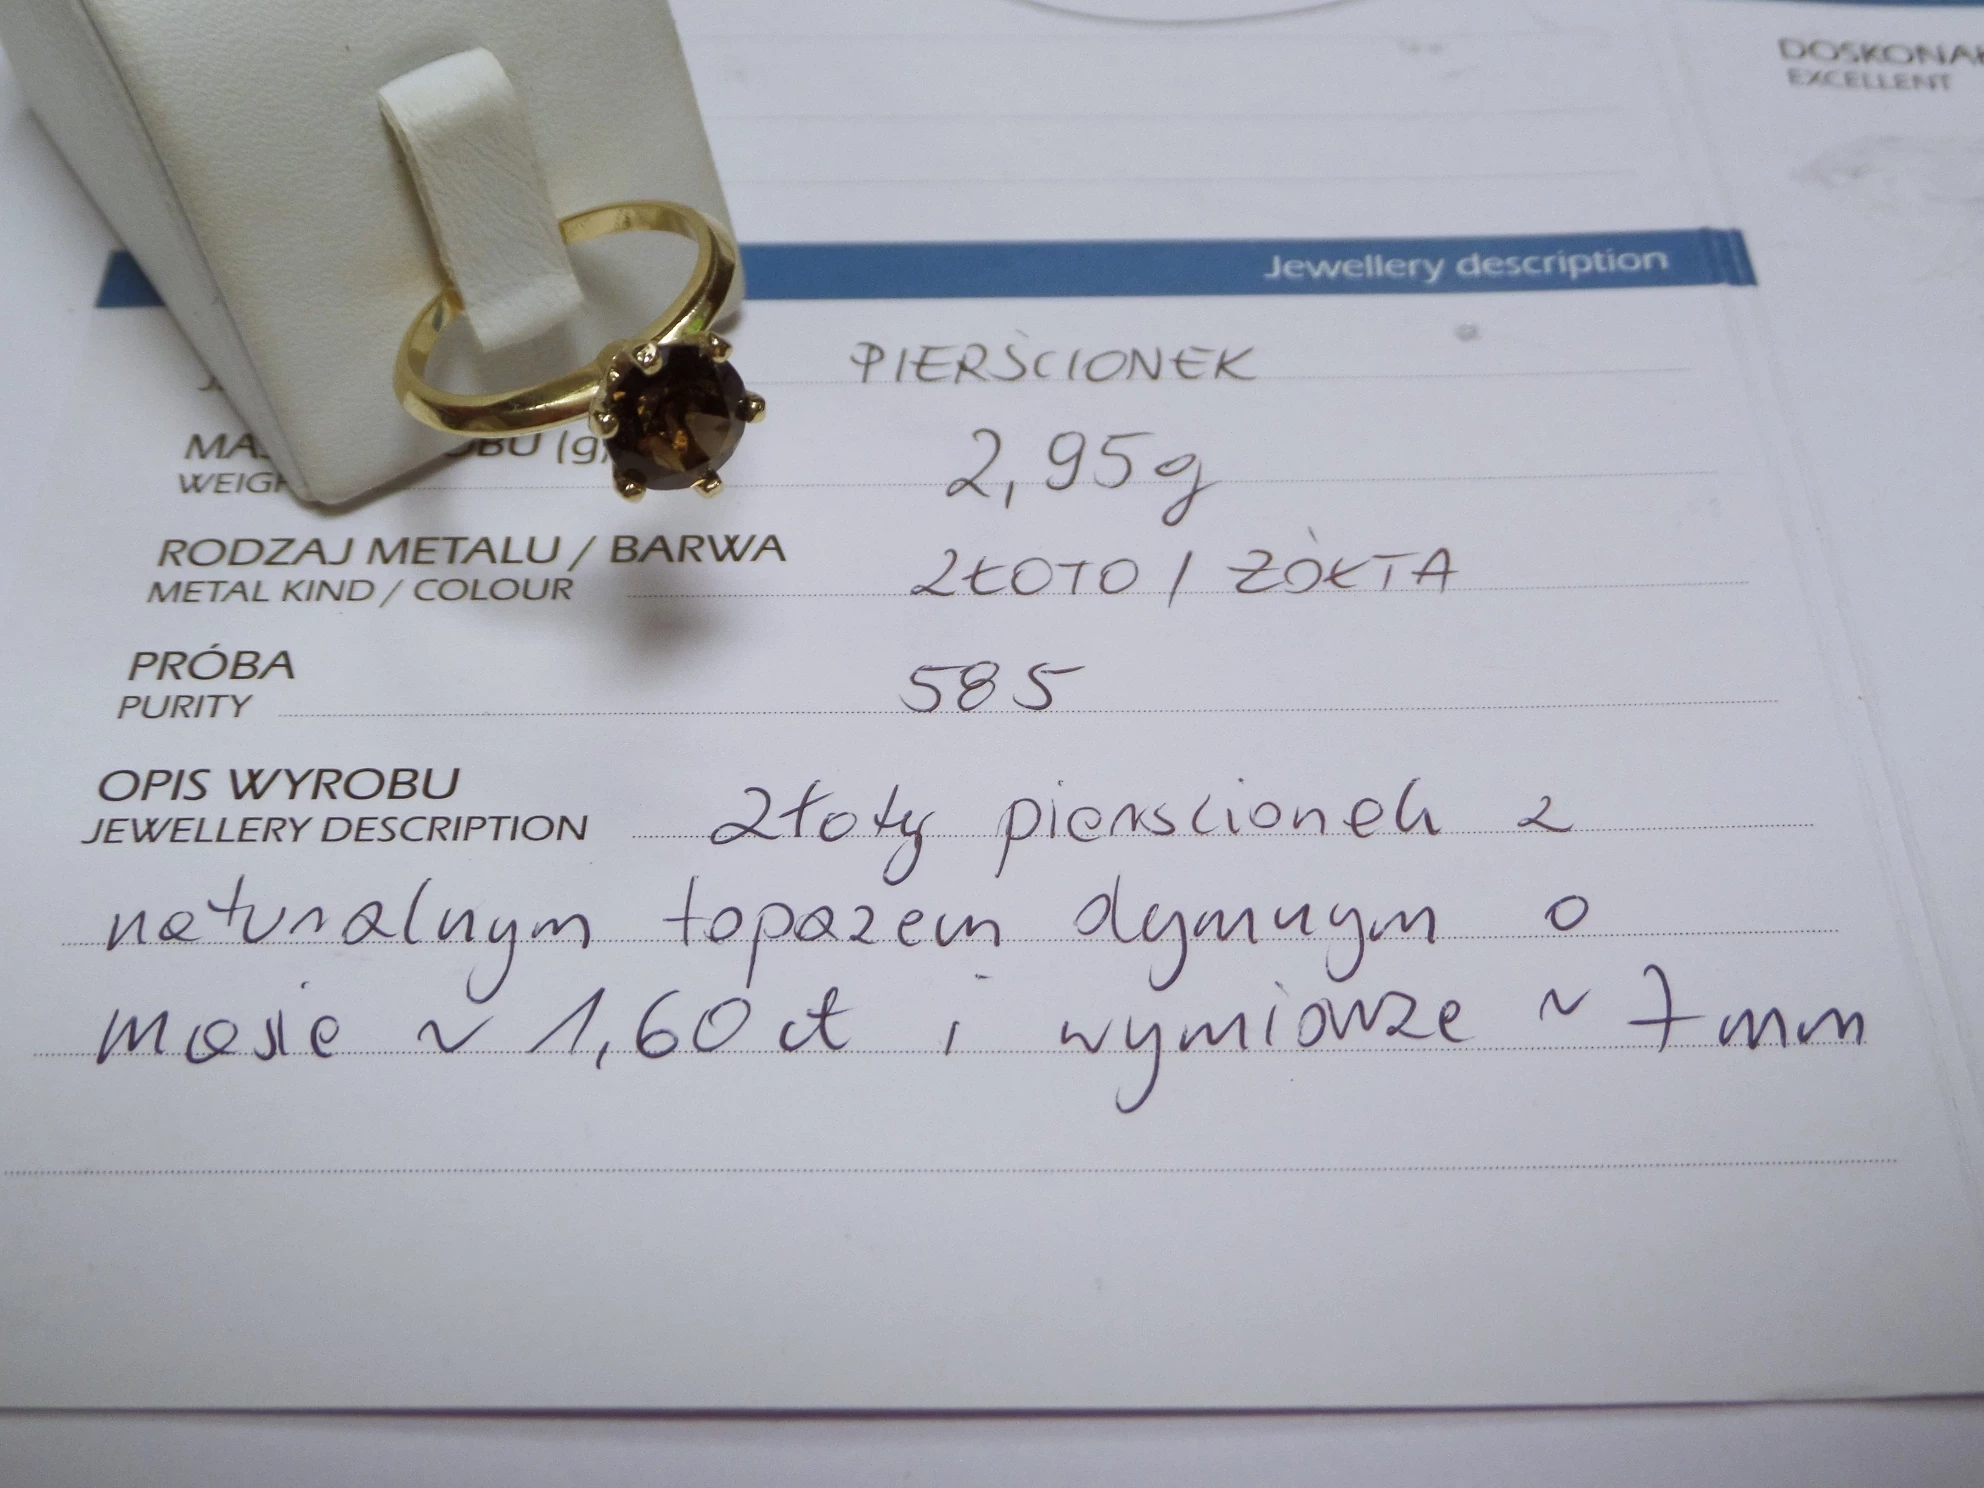 DOSKONA
EXCELLENT
Jewellery description
PIERŚCIONEK
MAS OBU (g)
WEIGH
2,95g
RODZAJ METALU / BARWA
METAL KIND / COLOUR
ZŁOTO / ŻÓŁTA
PRÓBA
PURITY
585
OPIS WYROBU
JEWELLERY DESCRIPTION
Złoty pierscionek z
naturalnym topazem dymnym o
masie ~ 1,60 ct i wymiarze ~ 7mm